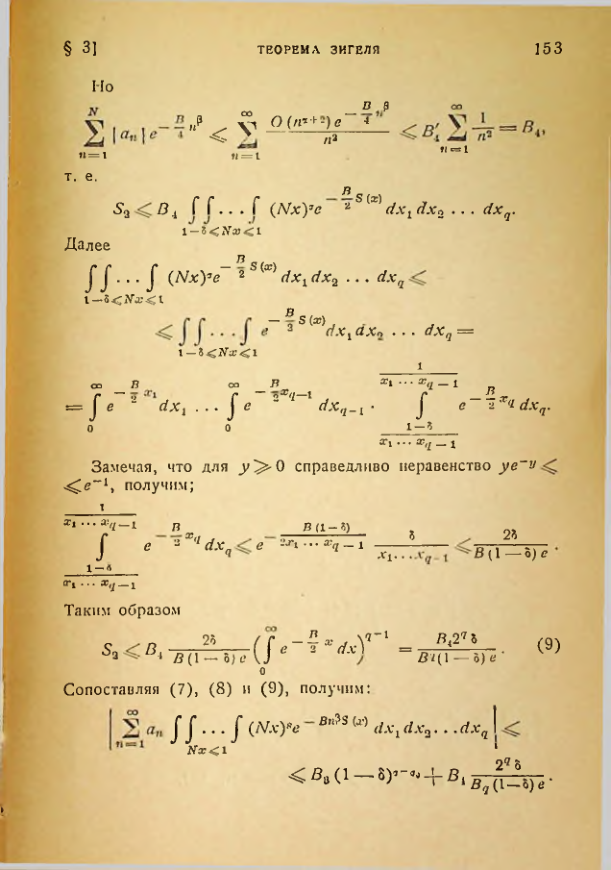 § 3]   ТЕОРЕМА ЗИГЕЛЯ   153
Но
$$\sum_{n=1}^{N} |a_n| e^{-\frac{B}{4} n^{\beta}} \leqslant \sum_{n=1}^{\infty} \frac{O(n^{\alpha+2}) e^{-\frac{B}{4} n^{\beta}}}{n^2} \leqslant B_4' \sum_{n=1}^{\infty} \frac{1}{n^2} = B_4,$$
т. е.
$$S_2 \leqslant B_4 \iint \cdots \int_{1-\delta \leqslant Nx \leqslant 1} (Nx)^{\sigma} e^{-\frac{B}{2} S(x)} dx_1 dx_2 \ldots dx_q.$$
Далее
$$\iint \cdots \int_{1-\delta \leqslant Nx \leqslant 1} (Nx)^{\sigma} e^{-\frac{B}{2} S(x)} dx_1 dx_2 \ldots dx_q \leqslant$$
$$\leqslant \iint \cdots \int_{1-\delta \leqslant Nx \leqslant 1} e^{-\frac{B}{2} S(x)} dx_1 dx_2 \ldots dx_q =$$
$$= \int_0^{\infty} e^{-\frac{B}{2} x_1} dx_1 \ldots \int_0^{\infty} e^{-\frac{B}{2} x_{q-1}} dx_{q-1} \cdot \int_{\frac{1-\delta}{x_1 \ldots x_{q-1}}}^{\frac{1}{x_1 \ldots x_{q-1}}} e^{-\frac{B}{2} x_q} dx_q.$$
Замечая, что для $y \geqslant 0$ справедливо неравенство $ye^{-y} \leqslant$
$\leqslant e^{-1}$, получим;
$$\int_{\frac{1-\delta}{x_1 \ldots x_{q-1}}}^{\frac{1}{x_1 \ldots x_{q-1}}} e^{-\frac{B}{2} x_q} dx_q \leqslant e^{-\frac{B(1-\delta)}{2x_1 \ldots x_{q-1}}} \frac{\delta}{x_1 \ldots x_{q-1}} \leqslant \frac{2\delta}{B(1-\delta)e}.$$
Таким образом
$$S_2 \leqslant B_4 \frac{2\delta}{B(1-\delta)e} \left( \int_0^{\infty} e^{-\frac{B}{2} x} dx \right)^{q-1} = \frac{B_4 2^q \delta}{B^q (1-\delta) e}. \quad (9)$$
Сопоставляя (7), (8) и (9), получим:
$$\left| \sum_{n=1}^{\infty} a_n \iint \cdots \int_{Nx \leqslant 1} (Nx)^s e^{-Bn^{\beta} S(x)} dx_1 dx_2 \ldots dx_q \right| \leqslant$$
$$\leqslant B_3 (1-\delta)^{\sigma-\sigma_0} + B_4 \frac{2^q \delta}{B_q (1-\delta) e}.$$